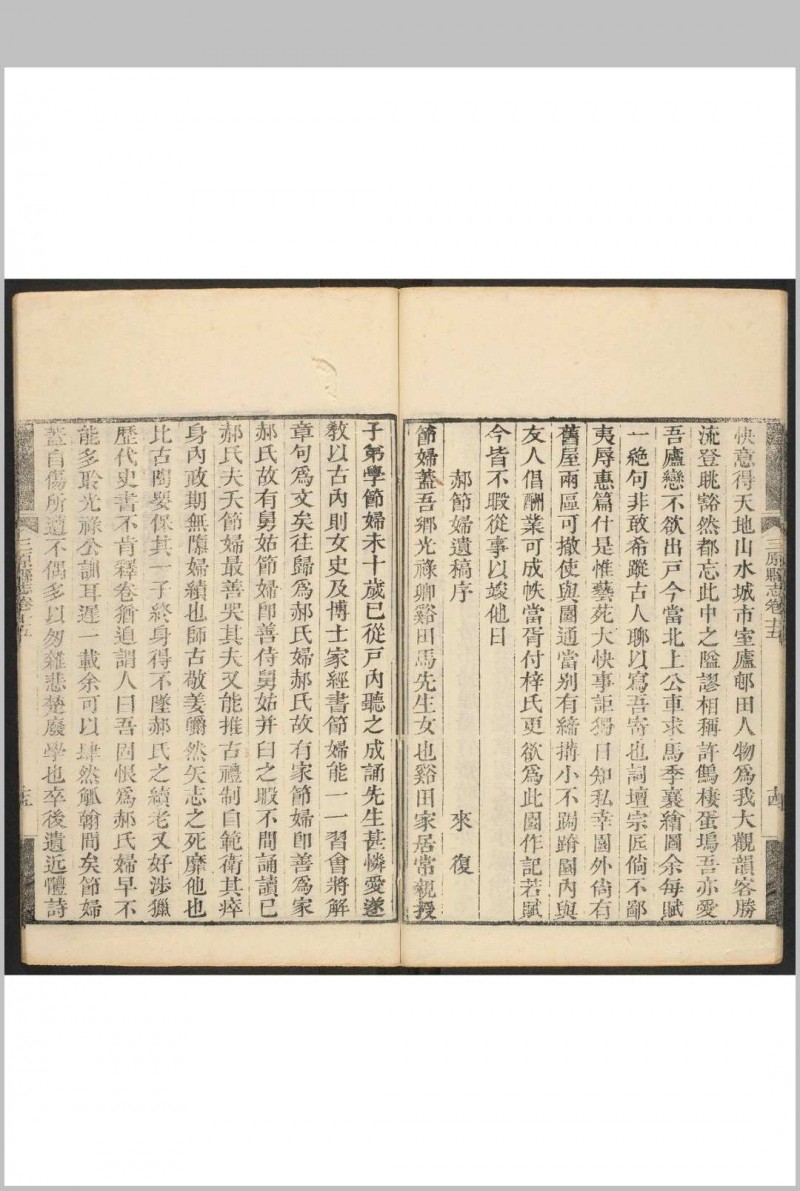 三原縣志卷十五
十四
快意得天地山水城市室廬邨田人物爲我大觀韻客勝
流登眺豁然都忘此中之隘謬相稱許鷦棲蛋塢吾亦愛
吾廬戀不欲出戸今當北上公車求馬季襄繪圖余每賦
一絶句非敢希蹤古人聊以寫吾寄也詞壇宗匠倘不鄙
夷辱惠篇什是惟藝苑大快事詎獨日知私幸園外尙有
舊屋兩區可撤使與園通當別有締搆小不跼蹐園內與
友人倡酬業可成帙當胥付梓氏更欲爲此園作記若賦
今皆不暇從事以竢他日
郝節婦遺稿序
來復
節婦葢吾鄉光祿卿谿田馬先生女也谿田家居常親授
子弟學節婦未十歲已從戸內聽之成誦先生甚憐愛遂
敎以古內則女史及博士家經書節婦能一一習會將解
章句爲文矣往歸爲郝氏婦郝氏故有家節婦卽善爲家
郝氏故有舅姑節婦卽善侍舅姑并臼之暇不問誦讀已
郝氏夫夭節婦最善哭其夫又能推古禮制自範衛其瘁
身內政期無隳婦績也師古敬姜皭然矢志之死靡他也
比古陶嬰保其一子終身得不墜郝氏之績老又好涉獵
歷代史書不肯釋卷猶追謂人曰吾固恨爲郝氏婦早不
能多聆光祿公訓耳遲一載余可以肆然觚翰間矣節婦
葢自傷所遭不偶多以勿雜悲楚廢學也卒後遺近體詩
三原縣志卷十五
十五